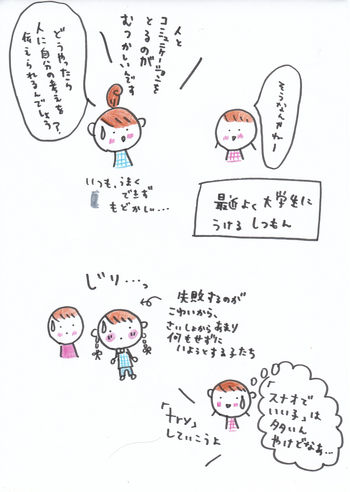 人と
コミュニケーションを
とるのが
むつかしいんです
どうやったら
人に自分の考えを
伝えられるんでしょう?
そうなんだねー
いつも、うまく
できず
もどかしい…
最近よく大学生に
うける しつもん
じり…っ
失敗するのが
こわいから、
さいしょからあまり
何もせずに
いようとする子たち
「スナオで
いい子」は
多いん
やけどなぁ…
「try」
していこうよ